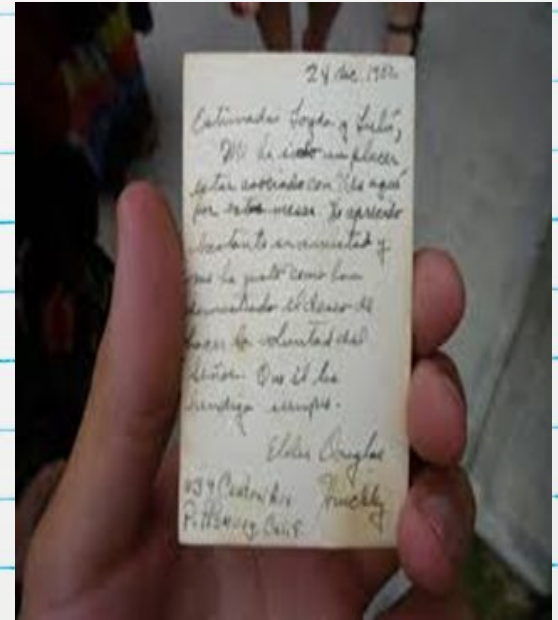 24 dic. 195
Estimadas Loyda y
Me ha sido un placer
estar asociado con Uds aquí
por estos meses. Yo aprecio
bastante su amistad y
me ha gustado como han
demostrado el deseo de
hacer la voluntad del
Señor. Que él los
bendiga siempre.
Elder Douglas
Pittsburg, Calif.